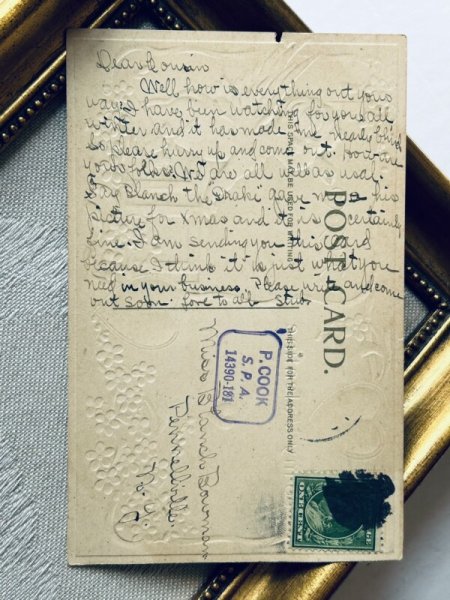 Dear Cousin
Well how is everything out yours
way? I have been watching for you all
winter and it has made me nearly blind
so please hurry up and come out. How are
your folks? We are all well as usual
Say Blanch "the Drake" gave me his
picture for Xmas and it is certainly
fine. I am sending you this card
because I think it is just what you
need in your business. Please write and come
out soon. Love to all
POST CARD.
THIS SPACE MAY BE USED FOR WRITING
THIS SIDE FOR THE ADDRESS ONLY
P. COOK
S. P. A.
14390-181
Miss Blanch Bowman
Pennellville
N.Y.
ONE CENT